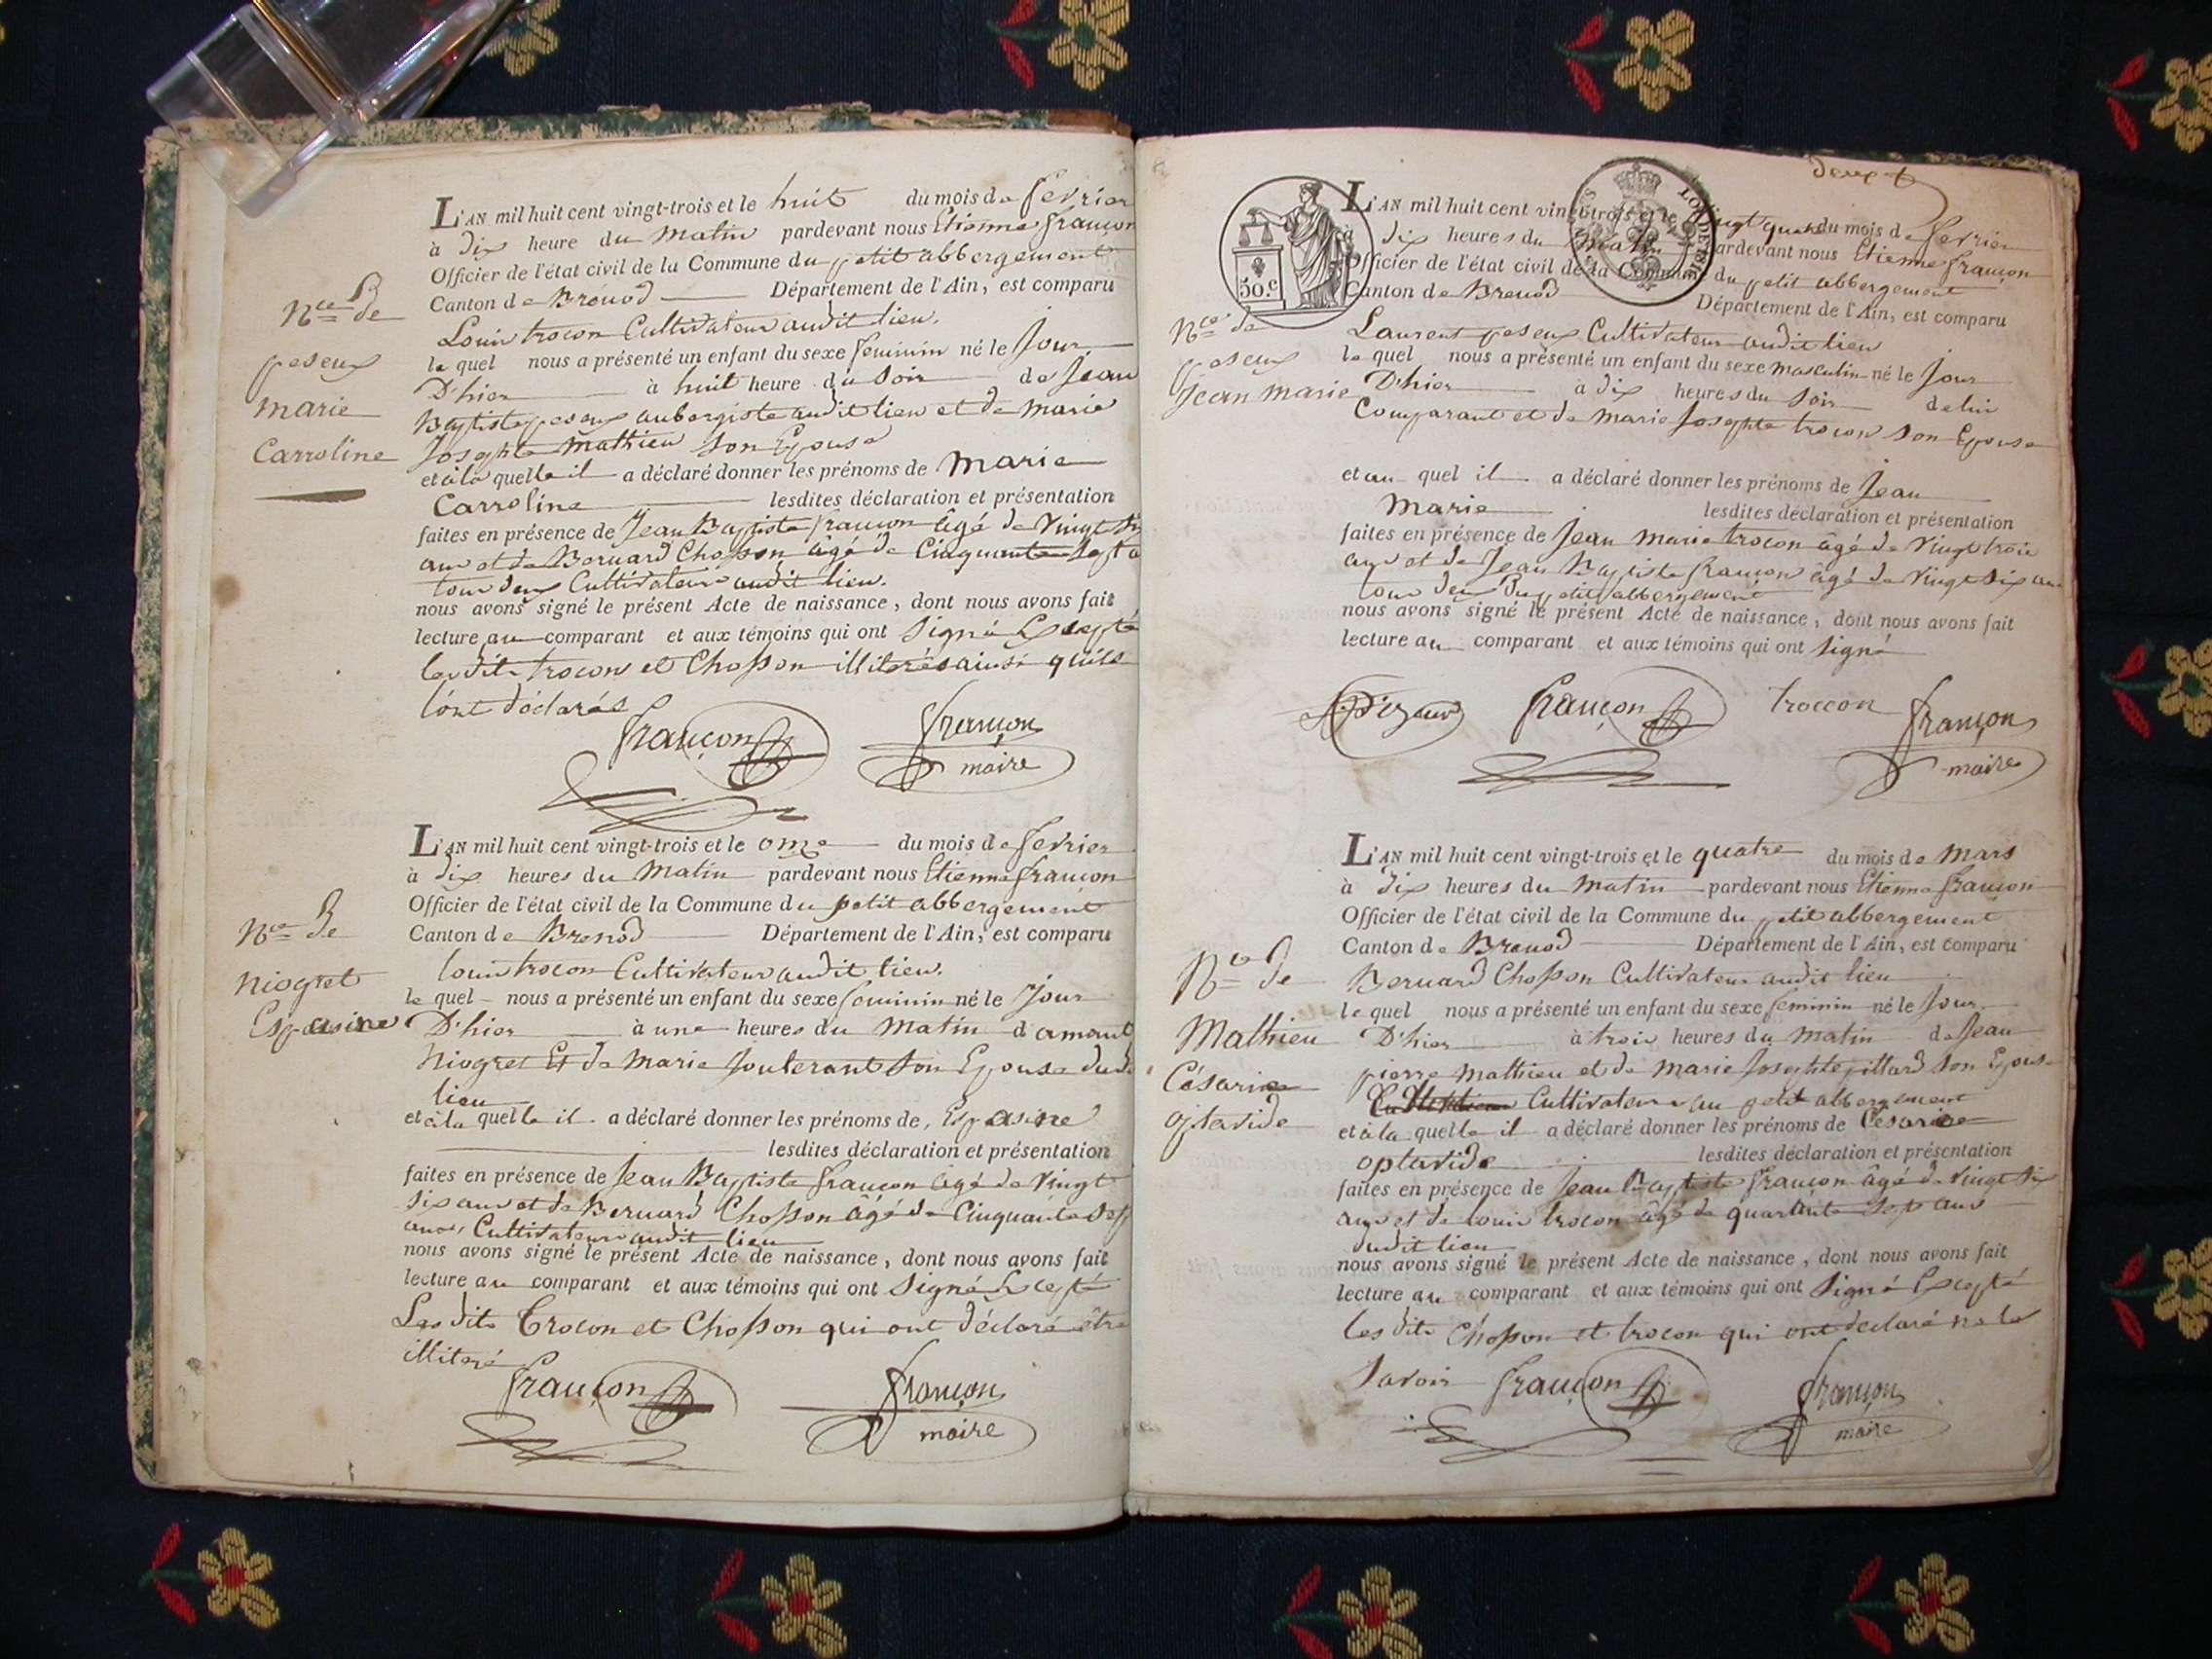 L'AN mil huit cent vingt-trois et le huit du mois de fevrier
à dix heure du matin pardevant nous Etienne françon
Officier de l'état civil de la Commune du petit abbergement
Canton de Brénod Département de l'Ain, est comparu
Louis trocon Cultivateur audit lieu.
le quel nous a présenté un enfant du sexe feminin né le Jour
D'hier à huit heure du Soir de Jean
Baptiste peseux aubergiste audit lieu et de marie
Josephte mathieu son Epouse
et à la quelle il a déclaré donner les prénoms de marie
Carroline lesdites déclaration et présentation
faites en présence de Jean Baptiste françon âgé de Vingt six
ans et de Bernard Chosson âgé de Cinquante sept a
tous deux Cultivateurs audit lieu.
nous avons signé le présent Acte de naissance, dont nous avons fait
lecture au comparant et aux témoins qui ont Signé Excepté
lesdits trocon et Chosson illiterés ainsi quils
l'ont déclarés
françon françon
maire
Nce De
peseux
marie
Carroline
L'AN mil huit cent vingt-trois et le onze du mois de fevrier
à dix heures du Matin pardevant nous Etienne françon
Officier de l'état civil de la Commune du petit abbergement
Canton de Brenod Département de l'Ain, est comparu
louis trocon Cultivateur audit lieu.
le quel nous a présenté un enfant du sexe feminin né le Jour
D'hier à une heures du Matin d'amant
Niogret Et de Marie Jouterant Son Epouse dudi
lieu
et à la quelle il a déclaré donner les prénoms de, Espasine
lesdites déclaration et présentation
faites en présence de Jean Baptiste françon âgé de Vingt
six ans et de Bernard Chosson âgé de Cinquante Sept
ans, Cultivateurs audit lieu
nous avons signé le présent Acte de naissance, dont nous avons fait
lecture au comparant et aux témoins qui ont Signé Excepté
Les dits Trocon et Chosson qui ont déclaré être
illiteré
françon françon
maire
Nce De
Niogret
Espasine
deux
50.c
LOI DE 1816
L'AN mil huit cent vingt-trois et le vingt quatre du mois de fevrier
à dix heures du matin pardevant nous Etienne françon
Officier de l'état civil de la Commune du petit abbergement
Canton de Brenod Département de l'Ain, est comparu
Laurent peseux Cultivateur audit lieu
le quel nous a présenté un enfant du sexe masculin né le Jour
D'hier à dix heures du Soir de lui
Comparant et de marie Josephte trocon son Epouse
et au quel il a déclaré donner les prénoms de Jean
Marie lesdites déclaration et présentation
faites en présence de Jean marie trocon âgé de Vingt trois
ans et de Jean Baptiste françon âgé de Vingt six ans
tous deux Du petit abbergement
nous avons signé le présent Acte de naissance, dont nous avons fait
lecture au comparant et aux témoins qui ont Signé
françon troccon françon
maire
Nce de
peseux
Jean marie
L'AN mil huit cent vingt-trois et le quatre du mois de Mars
à dix heures du matin pardevant nous Etienne françon
Officier de l'état civil de la Commune du petit abbergement
Canton de Brenod Département de l'Ain, est comparu
Bernard Chosson Cultivateur audit lieu
le quel nous a présenté un enfant du sexe féminin né le Jour
D'hier à trois heures du Matin de Jean
pierre mathieu et de Marie Josephte pittard son Epouse
Cultivateurs au petit abbergement
et à la quelle il a déclaré donner les prénoms de Césarine
optavide lesdites déclaration et présentation
faites en présence de Jean Baptiste françon âgé de Vingt six
ans et de louis trocon âgé de quarante sep ans
dudit lieu
nous avons signé le présent Acte de naissance, dont nous avons fait
lecture au comparant et aux témoins qui ont Signé Excepté
les dits Chosson et trocon qui ont declaré ne le
Savoir françon françon
maire
Nce De
Mathieu
Césarine
optavide